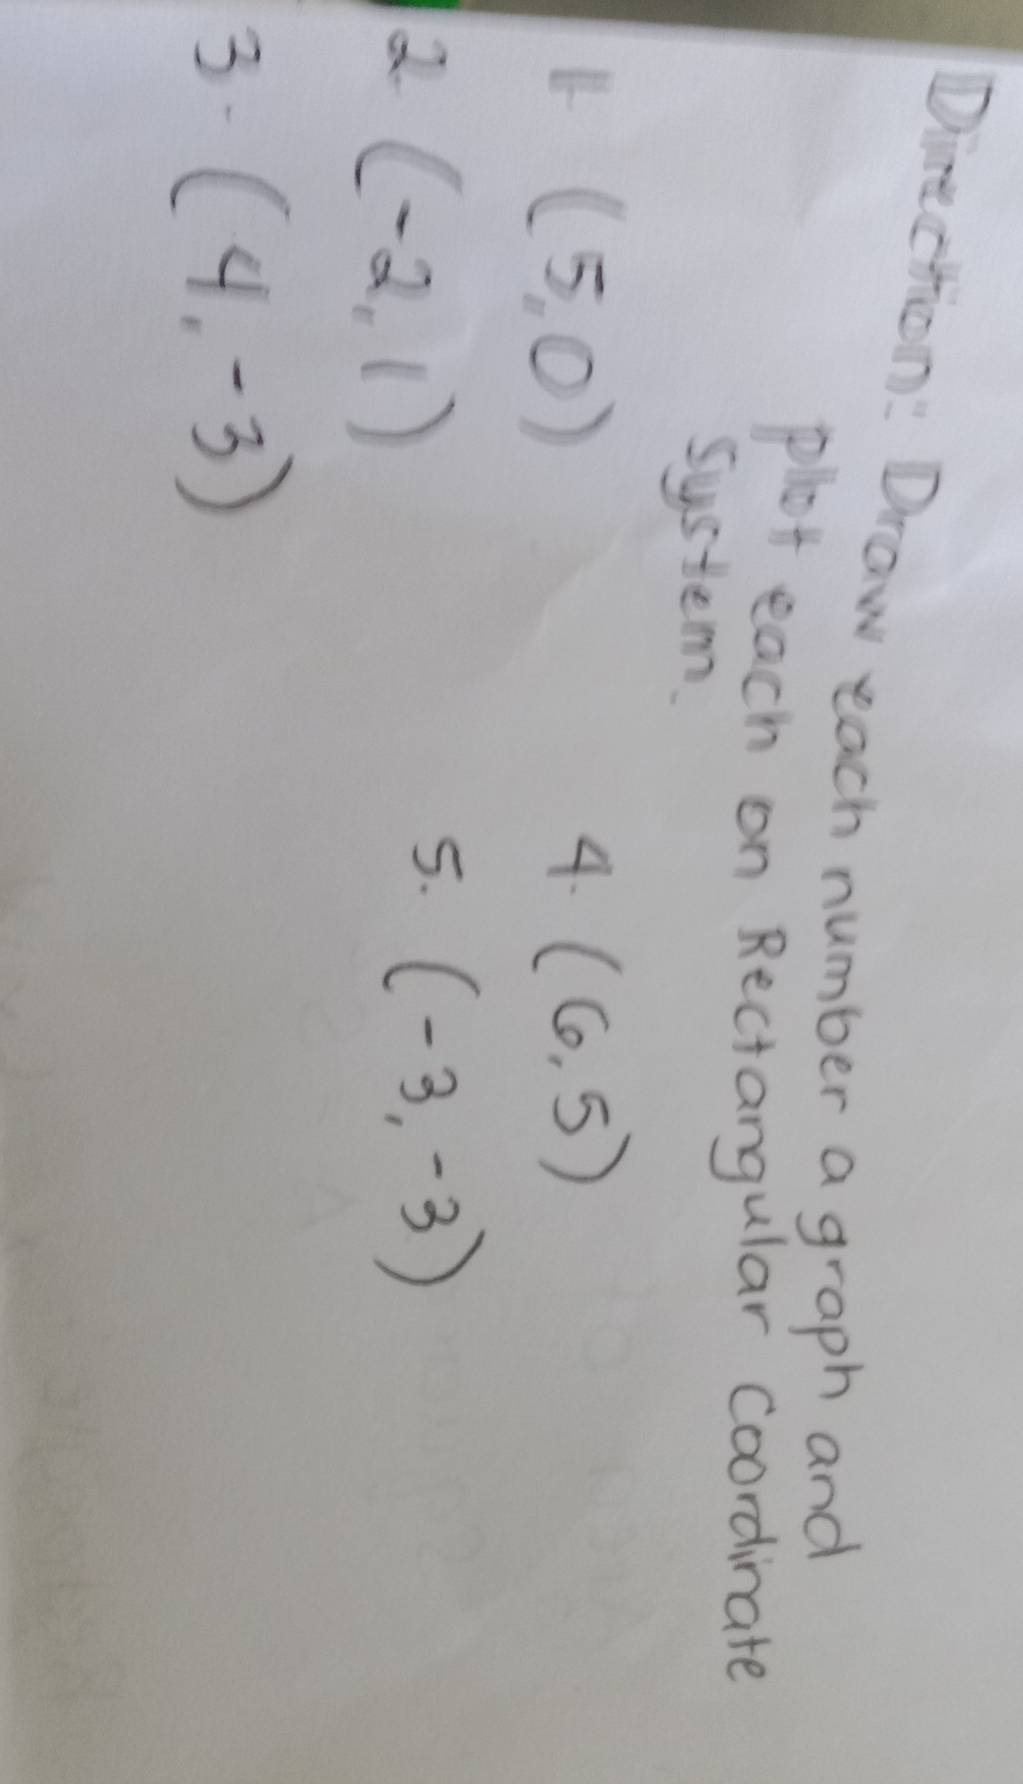 Direction: Draw each number a graph and
plot each on Rectangular Coordinate
System.
1. (5,0)
2. (-2,1)
3. (4,-3)
4. (6,5)
5. (-3,-3)